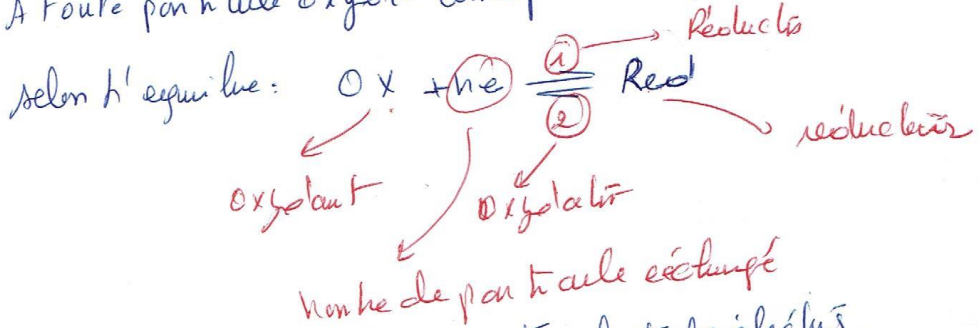 A toute particule oxy
selon l'équilibre : OX + né ⇌ Red
① Réductio
réducteur
②
oxydant
Oxydatio
nombre de particule échangé